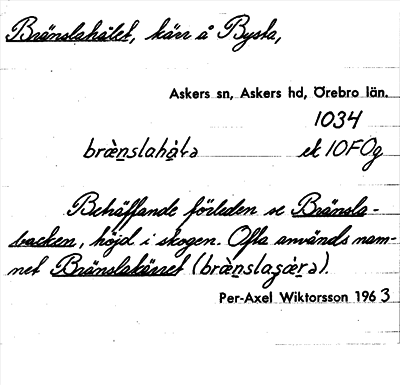 Bränslahålet, kärr å Bysta,
Askers sn, Askers hd, Örebro län.
1034
bræ̀n̲slahå̲lə ek 10F0g
Beträffande förleden se Bränsla-
backen, höjd i skogen. Ofta används nam-
net Bränslakärret (bræ̀n̲slaçær̲ə).
Per-Axel Wiktorsson 1963